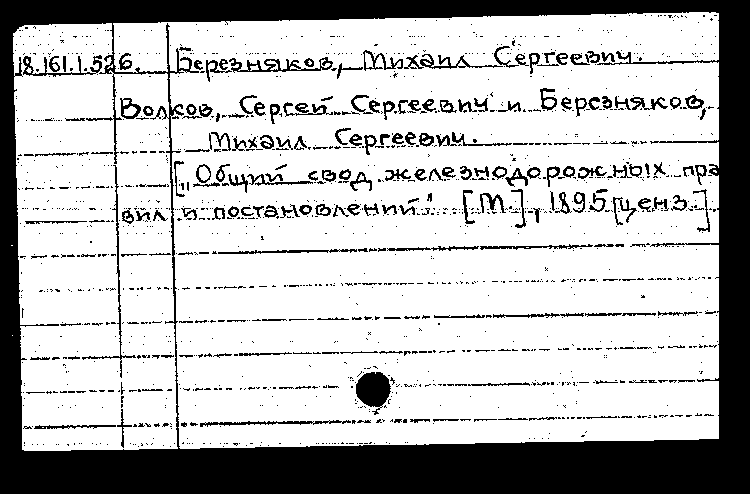 18.161.1.526. Березняков, Михаил Сергеевич.
Волков, Сергей Сергеевич и Березняков,
Михаил Сергеевич.
[„Общий свод железнодорожных пра
вил и постановлений". [М.], 1895 [ценз.]